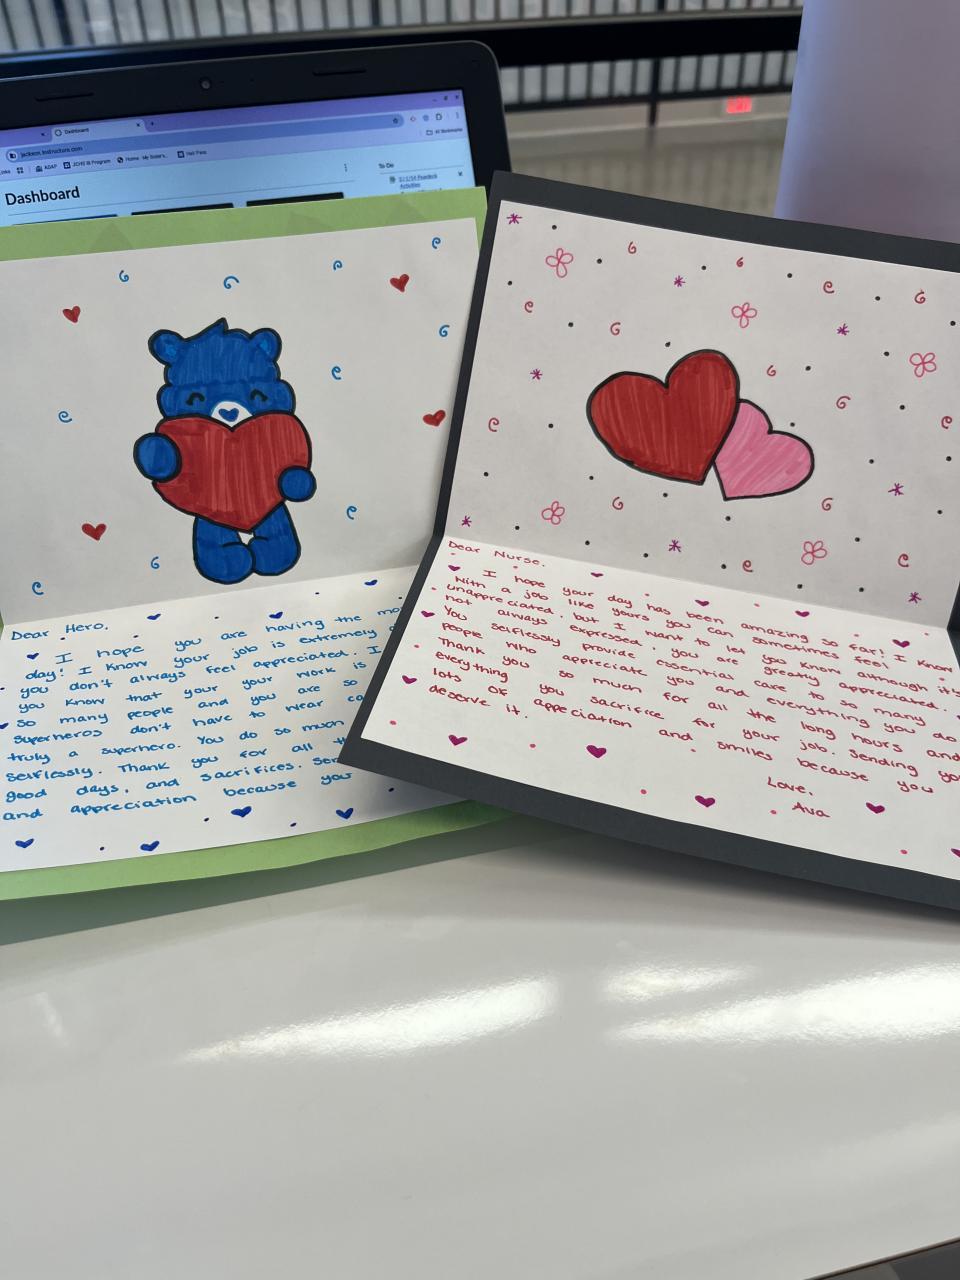 Dashboard
jackson.instructure.com
All Bookmarks
ADAP
JCHS IB Program
Home
Hall Pass
Dashboard
To Do
Activities
Dear Hero,
I hope you are having the
day! I know your job is extremely
you don't always feel appreciated. I
you know that your your work is
so many people and you are so
superheros don't have to wear
truly a superhero. You do so much
selflessly. Thank you for all
good days, and sacrifices.
and appreciation because you
Dear Nurse,
I hope your day has been amazing so far! I know
with a job like yours you can sometimes feel
unappreciated, but I want to let you know although it's
not always expressed, you are greatly appreciated.
You selflessly provide essential care to so many
people who appreciate you and everything you do.
Thank you so much for all the long hours and
everything you sacrifice for your job. Sending you
lots of appreciation and smiles because you
deserve it.
Love,
Ava